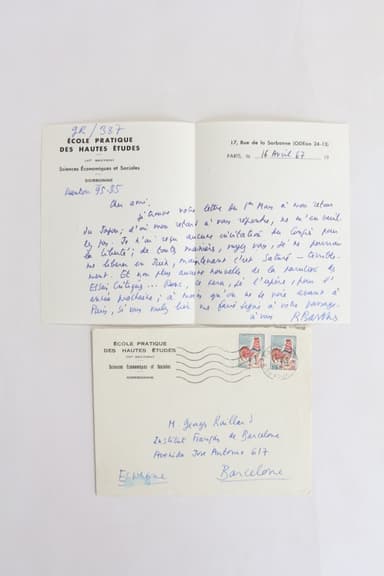 gR/387
ÉCOLE PRATIQUE
DES HAUTES ÉTUDES
Sciences Économiques et Sociales
SORBONNE
17, Rue de la Sorbonne (ODÉon 24-13)
PARIS, le 16 Avril 67 19
95-35
Cher ami,
J'trouve votre lettre du 1er Mars à mon retour
du Japon; d'où mon retard à vous répondre, ne m'en veuillez
pas. Je n'ai reçu aucune invitation du Congrès pour
la liberté; de toutes manières, voyez-vous, je ne pourrais
me libérer en Juin, maintenant c'est saturé - terrible-
ment. Et non plus aucune nouvelle de la traduction de
Essais Critiques... Donc, ce sera, je l'espère, pour l'
année prochaine; à moins qu'on ne se voie avant à
Paris, si vous voulez bien me faire signe à votre passage.
à vous
R Barthes
ÉCOLE PRATIQUE
DES HAUTES ÉTUDES
Sciences Économiques et Sociales
SORBONNE
M. Georges Raillard
Institut Français de Barcelone
Avenida Jose Antonio 617
Barcelone
Espagne